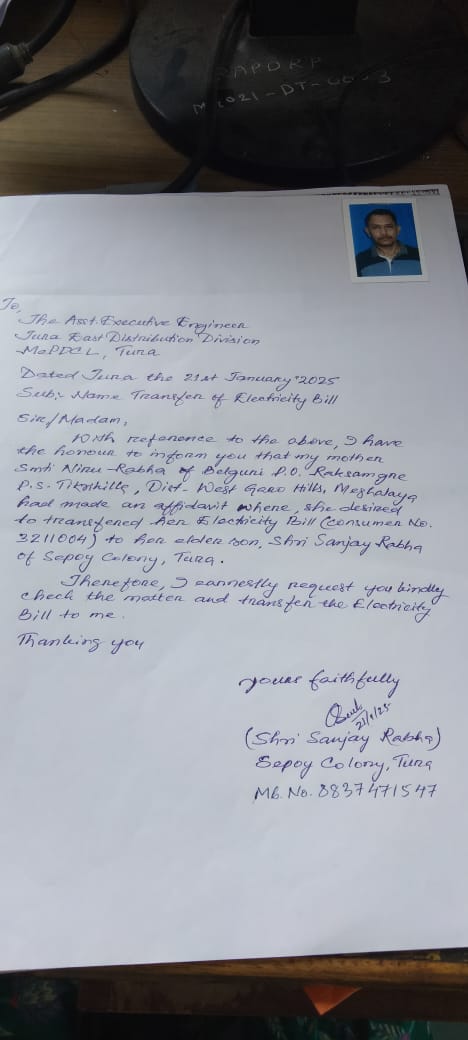 To,
The Asst. Executive Engineer
Tura East Distribution Division
MePDCL, Tura
Dated Tura the 21st January' 2025
Sub:- Name Transfer of Electricity Bill
Sir/Madam,
With reference to the above, I have
the honour to inform you that my mother
Smti Niru Rabha of Belguri P.O. Raksamgre
P.S. Tikrikilla, Dist- West Garo Hills, Meghalaya
had made an affidavit where, she desired
to transfered her Electricity Bill (Consumer No.
3211004) to her elder son, Shri Sanjay Rabha
of Sepoy Colony, Tura.
Therefore, I earnestly request you kindly
check the matter and transfer the Electricity
Bill to me.
Thanking you
yours faithfully
21/1/25
(Shri Sanjay Rabha)
Sepoy Colony, Tura
Mb. No. 8837471547